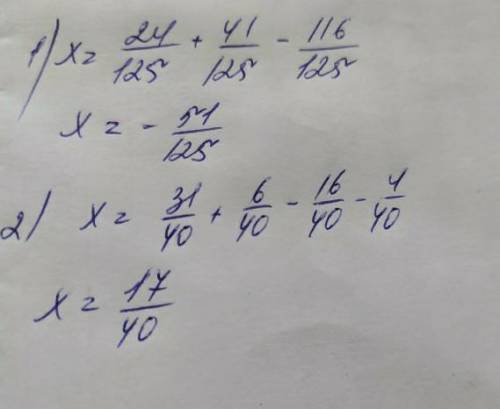 1) x = 24/125 + 41/125 - 116/125
x = - 51/125
2) x = 31/40 + 6/40 - 16/40 - 4/40
x = 17/40